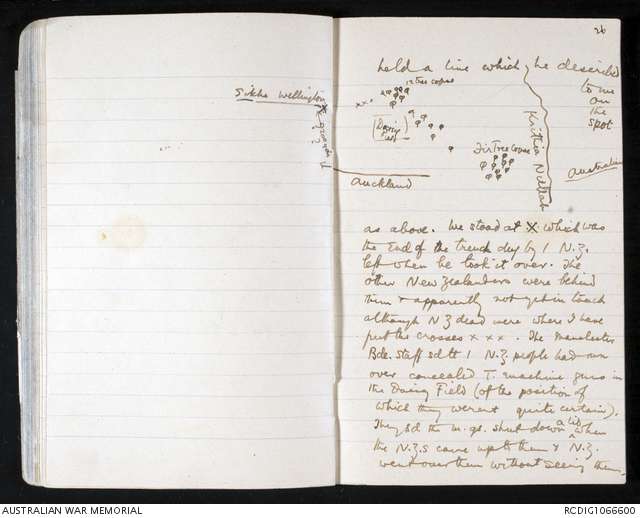 26
held a line which he described
to me
on
the
spot
12 tree copse
Sikhs Wellington
x x x
[Daisy
field]
Krithia Nullah
Fir Tree Copse
Australian
Auckland
as above. We stood at X which was
the end of the trench dug by 1 N.Z.
left when he took it over. The
other New Zealanders were behind
them & apparently not yet in touch
although N Z dead were where I have
put the crosses x x x. The Manchester
Bde. Staff sd tt 1 N.Z. people had run
over concealed T. machine guns in
the Daisy Field (of the position of
which they werent quite certain).
They sd the m.gs. shut down a bit when
the N.Z.s came up to them & N.Z.
went over them without seeing them.
AUSTRALIAN WAR MEMORIAL
RCDIG1066600